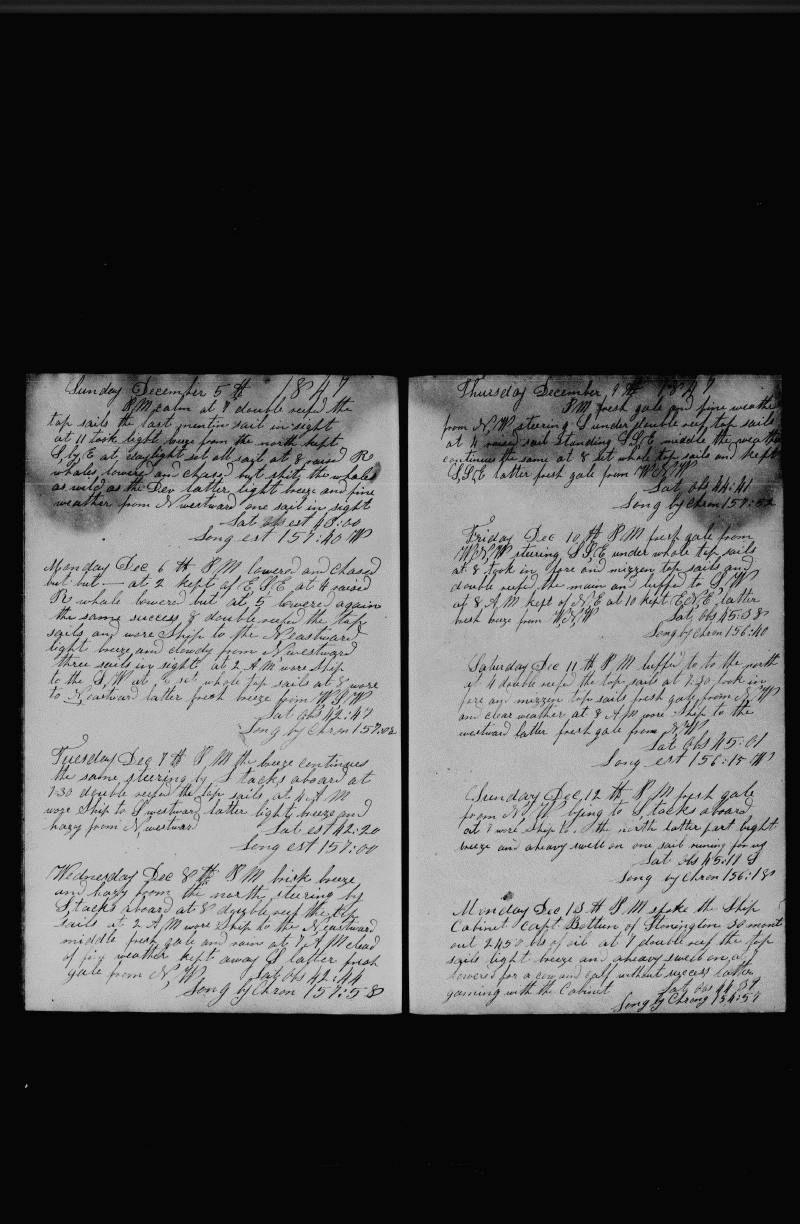 Sunday December 5th 1847
P M calm at 7 double reefd the
top sails the last mention sail in sight
at 11 took light breze from the north kept
S by E at daylight set all sail at 8 raised R
whales lowered and chased but the whales
as wild as the Dev latter light breeze and fine
weather from N westward one sail in sight
Lat obs est 43:00
Long est 157:40 W
Monday Dec 6th P M lowered and chased
but but — at 2 kept of E S E at 4 raised
R whale lowered but at 5 lowered again
the same success 8 double reefd the top
sails and wore Ship to the N eastward
light breeze and cloudy from N westward
three sails in sight at 2 A M wore Ship
to the S W at set whole top sails at 8 wore
to N eastward latter fresh breeze from W S W
Lat obs 42:47
Long by Chron 157:02
Tuesday Dec 7th P M the breeze continues
the same steering by S tacks aboard at
7:30 double reefd the top sails at 4 A M
wore Ship to S westward latter light breeze and
hazy from N westwar
Lat est 42:20
Long est 157:00
Wednesday Dec 8th P M brisk breeze
and hazy from the north steering by
S tacks aboard at 8 double reef the top
sails at 2 A M wore Ship to the N eastward
middle fresh gale and rain at 7 A M clead
of fig weather kept away S latter fresh
gale from N W Lat obs 42:44
Long by Chron 157:58
Thursday December 9th 1847
P M fresh gale and fine weathe
from N W steering S under double reef top sails
at 4 raised sail standing S S E middle the weathe
continues the same at 8 set whole top sails and kept
S S E latter fresh gale from W N W
Lat obs 44:41
Long by Chron 157:52
Friday Dec 10th P M fresh gale from
W N W steering S S E under whole top sails
at 8 took in fore and mizzen top sails and
double reefd the main and luffed to S W
at 8 A M kept of N E at 10 kept E N E latter
fresh breze from W N W Lat obs 45:38
Long by Chron 156:40
Saturday Dec 11th P M luffd to to the north
at 4 double reefd the top sails at 7:30 took in
fore and mizzen top sails fresh gale from N W
and clear weather at 8 A M wore Ship to the
westward latter fresh gale from N W
Lat obs 45:01
Long est 156:15 W
Sunday Dec 12th P M fresh gale
from N W lying to S tacks aboard
at 7 wore Ship to the north latter part light
breeze and aheavy swell on one sail runing for us
Lat obs 45:11 S
Long by Chron 156:18
Monday Dec 13th P M spoke the Ship
Cabinet Capt Bottum of Stonington 30 mont
out 2450 bls of oil at 7 double reef the top
sails light breeze and aheavy swell on at
lowered for a cow and calf without success latter
gaming with the Cabinet Lat obs 44:39
Long by Chrong 154:57